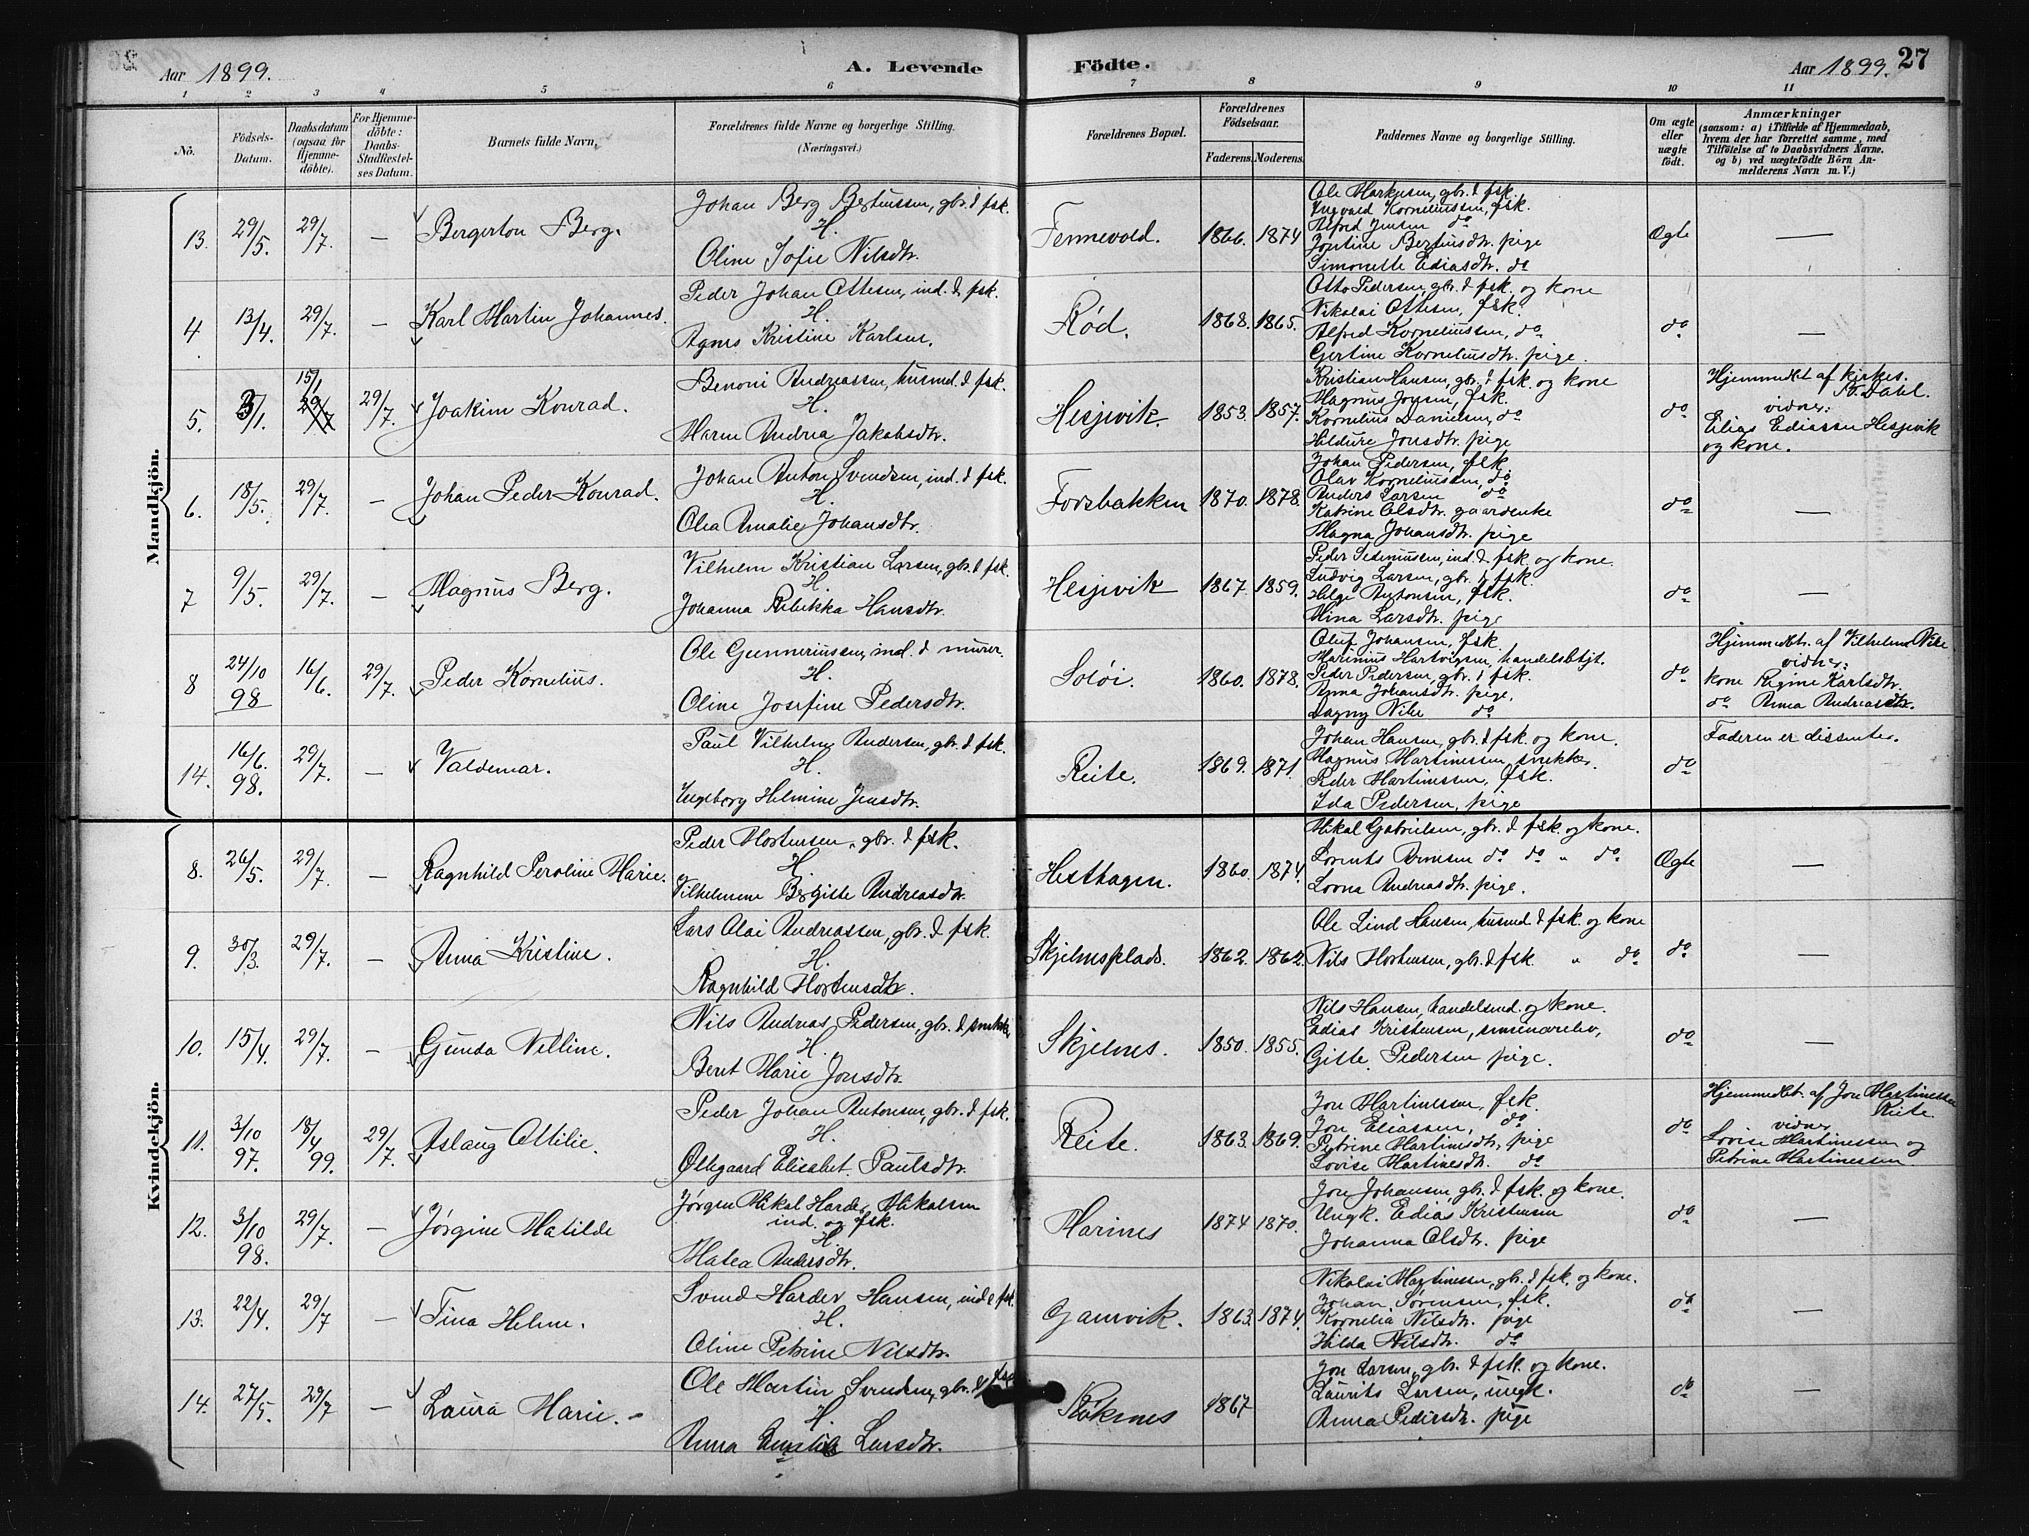 Aar 1899. A. Levende Födte. Aar 1899. 27
1 2 3 4 5 6 7 8 9 10 11
No. Födsels-Datum. Daabsdatum (ogsaa for Hjemmedöbte). For Hjemmedöbte: Daabs-Stadfæstelses Datum. Barnets fulde Navn. Forældrenes fulde Navne og borgerlige Stilling. (Næringsvei.) Forældrenes Bopæl. Forældrenes Födselsaar. Faderens. Moderens. Faddernes Navne og borgerlige Stilling. Om ægte eller uægte födt. Anmærkninger (saasom: a) i Tilfælde af Hjemmedaab, hvem der har forrettet samme, med Tilföielse af to Daabsvidners Navne. og b) ved uægtefödte Börn Anmelderens Navn m. V.)
Mandkjön.
13. 29/5. 29/7. — Bergerton Berg.
Johan Berg Bertinssen, gbr. & fsk.
H.
Oline Sofie Nilsdtr.
Fennevold. 1866. 1874
Ole Markusen, gbr. & fsk.
Ingvald Korneliussen, fsk.
Alfred Jensen do
Jontine Bertinsdtr. pige
Simonette Ediasdtr. do
Ægte —
4 13/4. 29/7. — Karl Martin Johannes.
Peder Johan Ottesen, ind. & fsk.
H.
Agnes Kristine Karlsen.
Rød. 1868. 1865.
Otto Pedersen, gbr. & fsk. og kone
Nikolai Ottesen, fsk.
Alfred Korneliussen, do
Gertine Korneliusdtr. pige.
do —
5. 3/1. 15/1 29/7 29/7. Joakim Konrad.
Benoni Andreassen, husmd. & fsk.
H.
Maren Andrea Jakobsdtr.
Hesjevik. 1853. 1857.
Kristian Hansen, gbr. & fsk. og kone
Magnus Jonsen, fsk.
Kornelius Danielsen, do
Hildure Jonsdtr. pige
do
Hjemmedbt af kirkes.
B. Dahl.
vidner:
Elias Ediassen Hesjevik
og kone.
6. 18/5. 29/7. — Johan Peder Konrad.
Johan Anton Svendsen, ind. & fsk.
H.
Olea Amalie Johansdtr.
Forsbakken 1870. 1878.
Johan Pedersen, fsk.
Olav Korneliussen, do
Anders Larsen do
Katrine Olsdtr. gaardenke
Magna Johansdtr. pige
do —
7 9/5. 29/7. — Magnus Berg.
Vilhelm Kristian Larsen, gbr. & fsk.
H.
Johanna Rebekka Hansdtr.
Hesjevik 1867. 1859.
Peder Sedeniussen, ind. & fsk. og kone.
Ludvig Larsen, gbr. & fsk.
Helge Antonsen, fsk.
Mina Larsdtr. pige
do —
8 24/10 98 16/6. 29/7. Peder Kornelius.
Ole Gunneriussen, ind. & murer.
H.
Oline Josefine Pedersdtr.
Soløi. 1860. 1878.
Oluf Johansen, fsk.
Marinius Hartvigsen, handelsbtjt.
Peder Pedersen, gbr. & fsk.
Anna Johansdtr. pige.
Dagny Vike do
do
Hjemmedbt. af Vilhelm Vike
vidner:
kone Regine Karlsdtr.
do Anna Andreasdtr.
14. 16/6. 98. 29/7. — Valdemar.
Paul Vilhelm Andersen, gbr. & fsk.
H.
Ingeborg Helmine Jensdtr.
Reite. 1869. 1871.
Johan Hansen, gbr. & fsk. og kone.
Magnus Martinessen, snekker.
Peder Martinessen, fsk.
Ida Pedersen, pige
do
Faderen er dissenter.
Kvindekjön.
8. 26/5. 29/7. — Ragnhild Peroline Marie.
Peder Mortensen, gbr. & fsk.
H.
Vilhelmine Bergitte Andreasdtr.
Hesthagen. 1860. 1874.
Mikal Gabrielsen, gbr. & fsk. og kone.
Lorents Arntsen do do " do
Lovna Andreasdtr. pige.
Ægte —
9. 30/3. 29/7. — Anna Kristine.
Lars Olai Andreassen, gbr. & fsk.
H.
Ragnhild Mortensdtr.
Skjelnesplads. 1862. 1862.
Ole Lind Hansen, husmd. & fsk. og kone
Nils Mortensen, gbr. & fsk. " do
do —
10. 15/4. 29/7. — Gunda Velline.
Nils Andreas Pedersen, gbr. & snekker,
H.
Berit Marie Jonsdtr.
Skjelnes. 1850. 1855.
Nils Hansen, handelsmd. og kone.
Edias Kristensen, seminarelev,
Gitte Pedersen pige.
do —
11. 3/10 97. 18/4 99. 29/7. Aslaug Ottilie.
Peder Johan Antonsen, gbr. & fsk.
H.
Ovegaard Elisabet Paulsdtr.
Reite. 1863. 1869.
Jon Martinessen, fsk.
Jon Eliassen, do
Petrine Martinesdtr. pige
Lovise Martinesdtr. do
do
Hjemmedbt. af Jon Martinessen
Reite.
vidner
Lovise Martinessen og
Petrine Martinessen
12. 3/10 98. 29/7. — Jørgine Matilde
Jørgen Mikal Harder Mikalsen
ind. og fsk.
H.
Matea Andersdtr.
Marines 1874 1870.
Jon Johansen, gbr. & fsk. og kone.
Ungk. Edias Kristensen
Johanna Olsdtr. pige
do —
13. 22/4. 29/7 — Tina Helene.
Svend Harder Hansen, ind & fsk.
H.
Oline Petrine Nilsdtr.
Gamvik. 1863. 1874.
Nikolai Martinessen, gbr. & fsk. og kone.
Johan Sørensen, fsk.
Kornelia Nilsdtr. pige
Hilda Nilsdtr. do
do —
14. 27/5. 29/7 — Laura Marie.
Ole Martin Svendsen, gbr. & fsk
H.
Anna Larsdtr.
Røknes 1867
Jon Larsen, gbr. & fsk. og kone.
Laurits Larsen, ungk.
Anna Pedersdtr. pige
do —